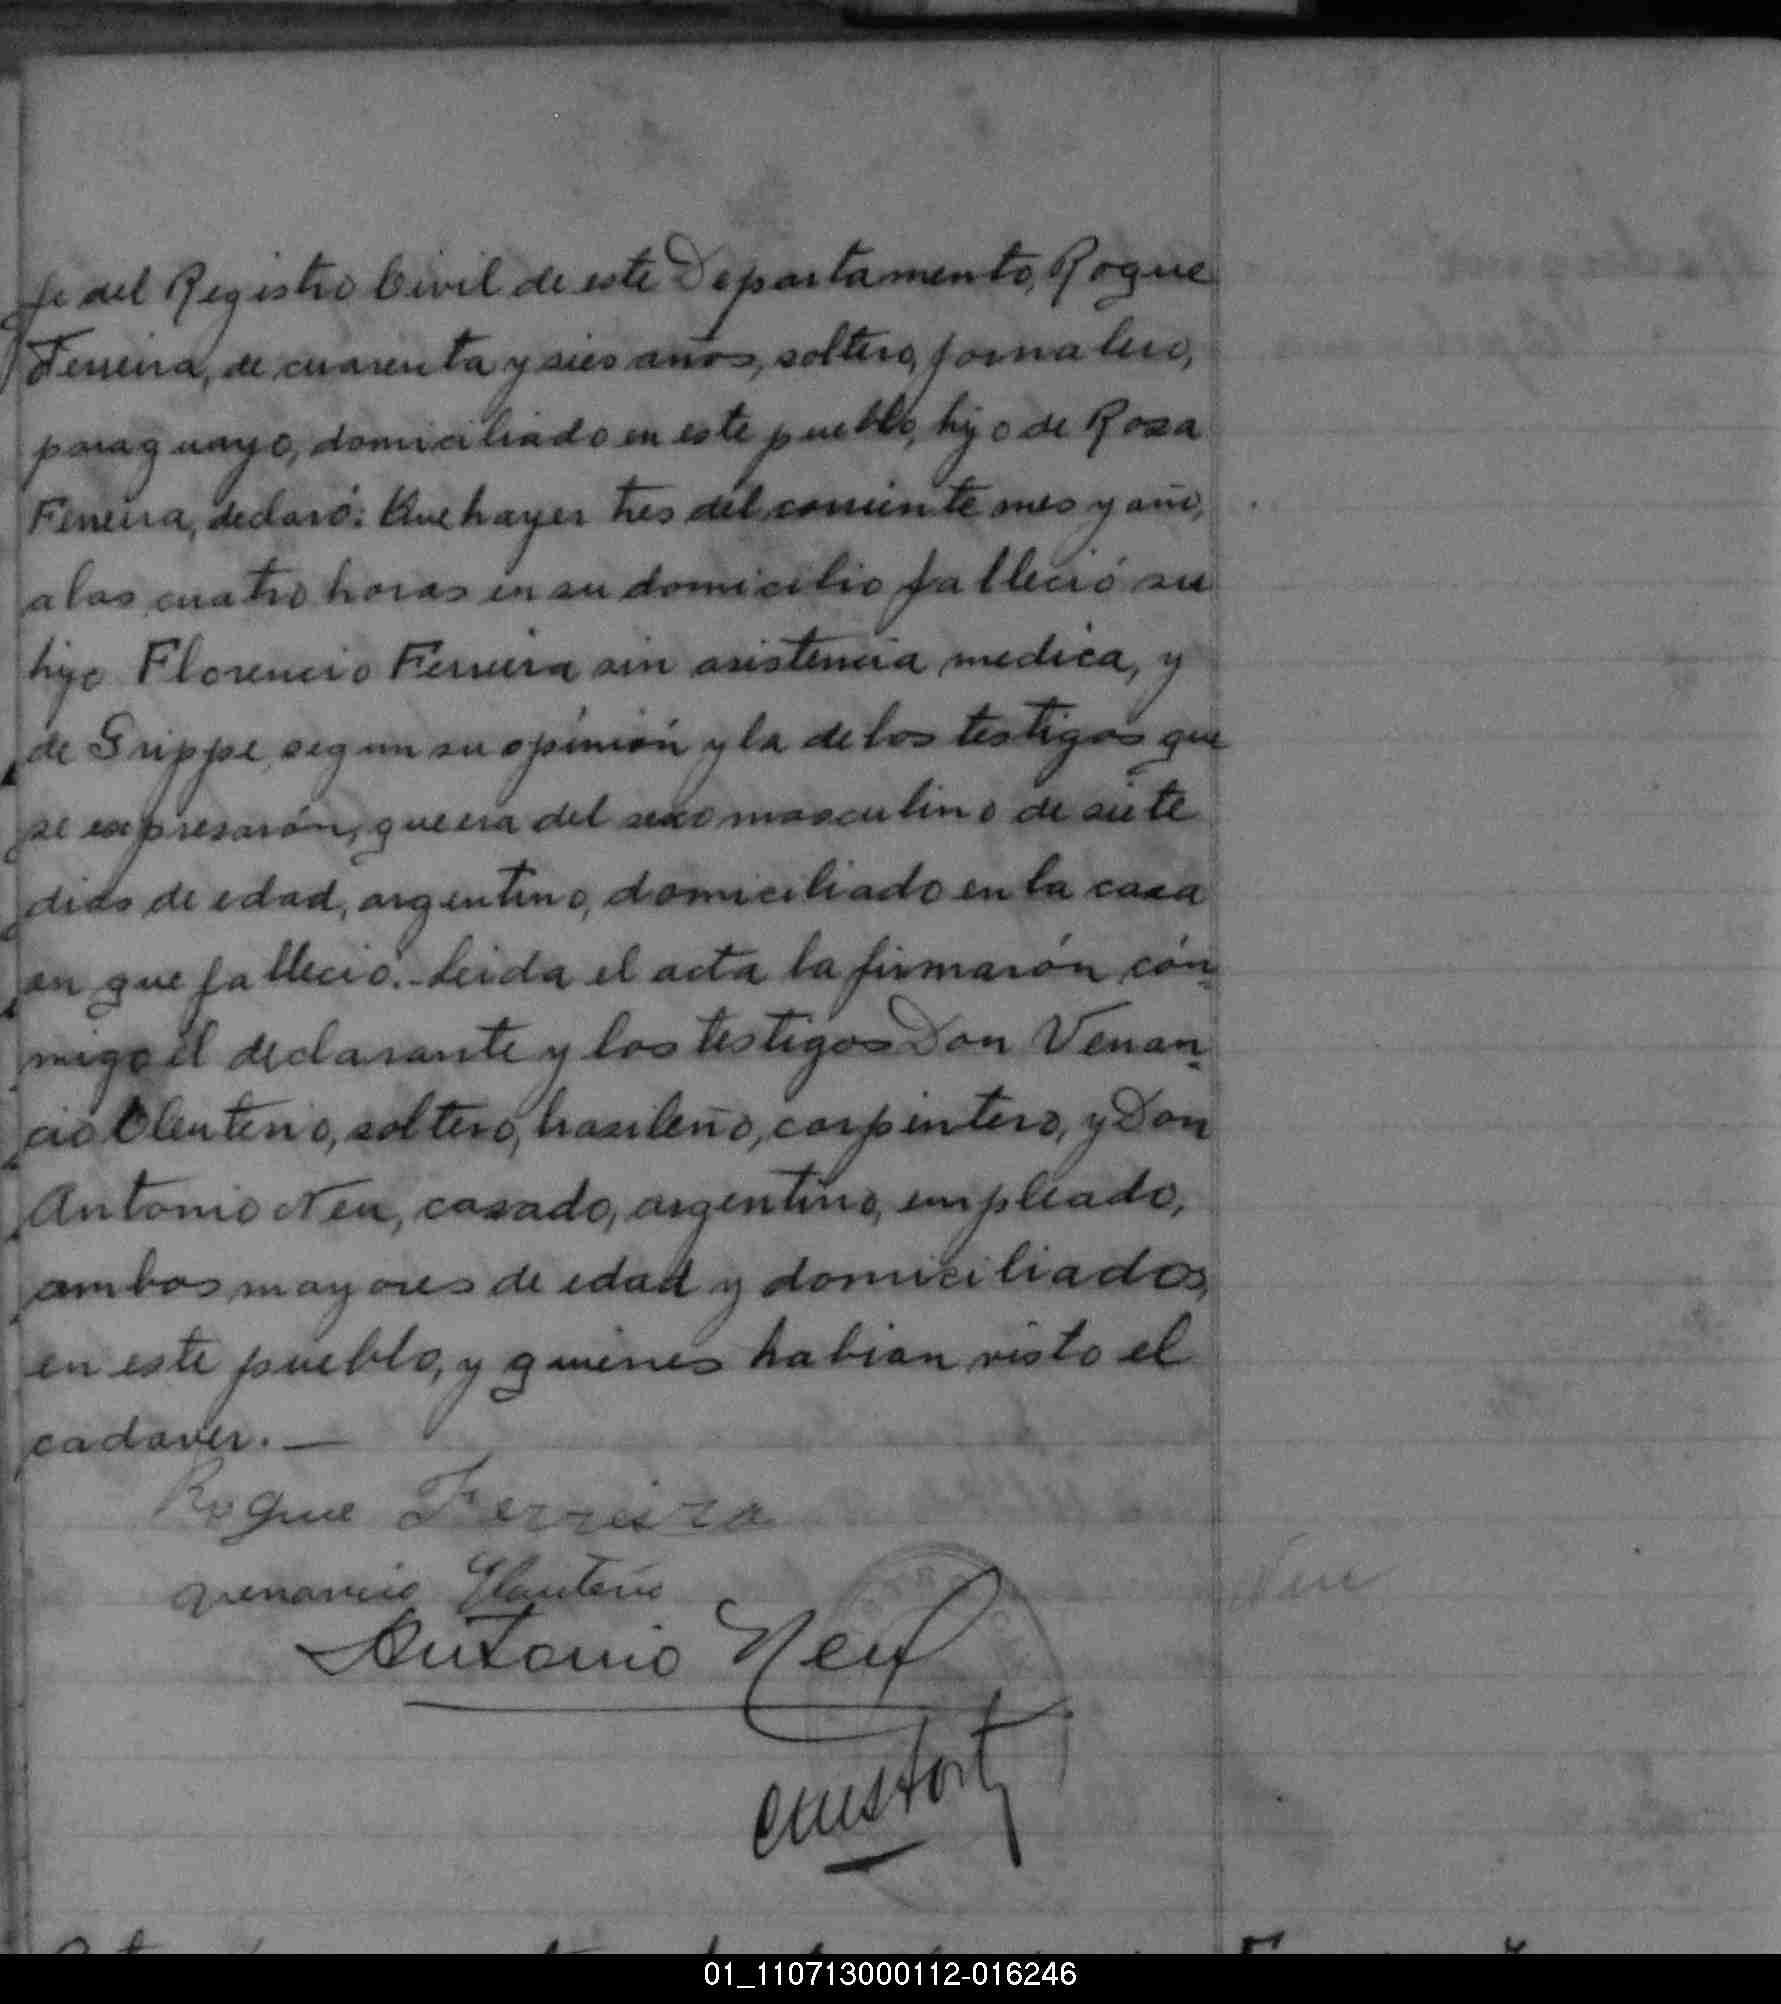 fe del Registro Civil de este Departamento, Roque
Ferreira, de cuarenta y sies años, soltero, jornalero,
paraguayo, domiciliado en este pueblo, hijo de Rosa
Ferreira, declaró: Que hayer tres del corriente mes y año,
a las cuatro horas en su domicilio falleció su
hijo Florencio Ferreira sin asistencia medica, y
de Grippe, segun su opinión y la de los testigos que
se expresarón, que era del sexo masculino de siete
dias de edad, argentino, domiciliado en la casa
en que falleció.- Leida el acta la firmarón cón-
migo el declarante y los testigos Don Venan-
cio Olenterio, soltero, brasileño, carpintero, y Don
Antonio Neu, casado, argentino, empleado,
ambos mayores de edad y domiciliados,
en este pueblo, y quienes habian visto el
cadaver. —
Roque Ferreira
Venancio
Antonio Neu
01_110713000112-016246